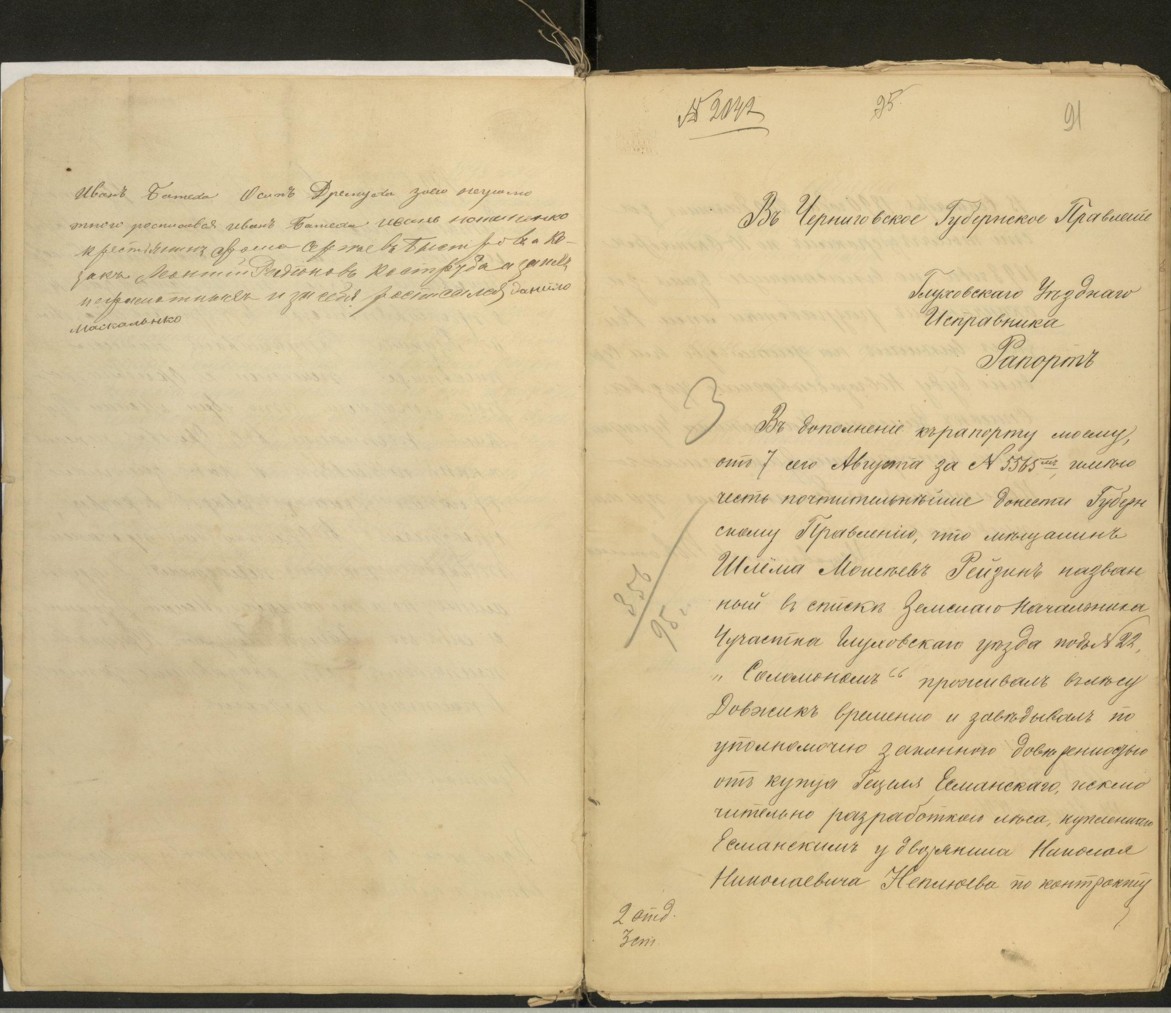 Иванъ Батеха Осипъ Дремуха зоего неграмо
тного росписовся иванъ Батеха иванъ
крестянинъ
закъ Леонтий Родионовъ а занихъ
неграмотныхъ и зясебя росписался данило
Москаленко
№ 2042 95 91
Въ Черниговское Губернское Правлен
Глуховскаго Уѣзднаго
Исправника
Рапортъ
3
Въ дополненіе къ рапорту моему,
отъ 7 сего Августа за № 5565, имѣю
честь почтительнѣйше донести Губерн
скому Правленію, что мѣщанинъ
Шлёма Моисѣевъ Рейзинъ назван
ный въ спискѣ Земскаго Начальника
4 участка Глуховскаго уѣзда подъ № 22,
„ Соломономъ “ проживалъ въ лѣсу
Довжикъ временно и завѣдывалъ по
уполномочію законного довѣренностью
отъ купца Гецеля Есманскаго, исклю
чительно разработкою лѣса, купленнаго
Есманскимъ у дворянина Николая
Николаевича Неплюева по контракту
356
95
2 отд.
3 ст